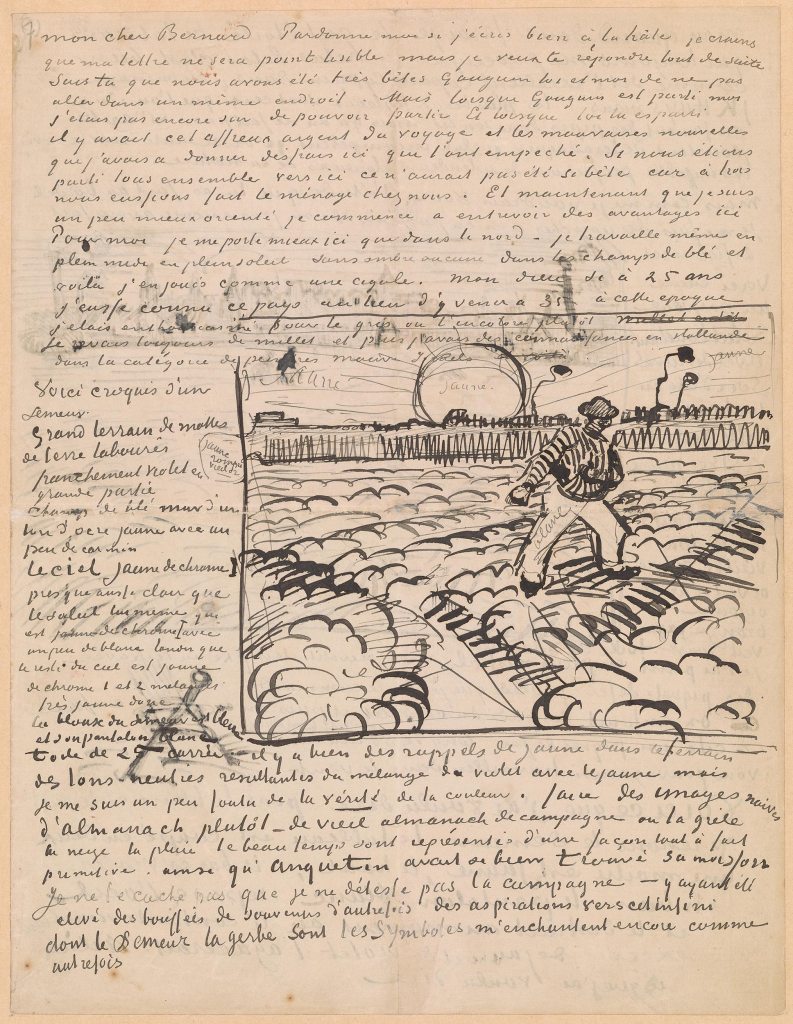 mon cher Bernard Pardonne moi si j'écris bien à la hâte je crains
que ma lettre ne sera point lisible mais je veux te répondre tout de suite
Sais tu que nous avons été très bêtes Gauguin toi et moi de ne pas
aller dans un même endroit. Mais lorsque Gauguin est parti moi
j'etais pas encore sur de pouvoir partir Et lorsque toi tu es parti
il y avait cet affreux argent du voyage et les mauvaises nouvelles
que j'avais a donner des frais ici qui l'ont empeché. Si nous étions
parti tous ensemble vers ici ce n'aurait pas été si bête car à trois
nous eussions fait le ménage chez nous. Et maintenant que je suis
un peu mieux orienté je commence a entrevoir des avantages ici
Pour moi je me porte mieux ici que dans le nord - je travaille même en
plein midi en plein soleil sans ombre aucune dans les champs de blé et
voilà j'en jouis comme une cigale. mon dieu si à 25 ans
j'eusse connu ce pays au lieu d'y venir a 35 à cette epoque
j'étais enthousiasmé pour le gris ou l'incolore plutôt
je revais toujours de millet et puis j'avais des connaissances en Hollande
dans la catégorie de peintres mauve Israels
Voici croquis d'un
semeur.
Grand terrain de mottes
de terre labourés
franchement violet en
grande partie
Champ de blé mur d'un
ton d'ocre jaune avec un
peu de carmin
le ciel jaune de chrome 1
presque aussi clair que
le soleil lui même qui
est jaune de chrome 1 avec
un peu de blanc tandis que
le reste du ciel est jaune
de chrome 1 et 2 mélangés
très jaune donc
la blouse du semeur est bleue
et son pantalon blanc
toile de 25 carrée
jaune
jaune
jaune
jaune
rompu
violet
blanc
il y a bien des rappels de jaune dans le terrain
des tons neutres resultantes du mélange du violet avec le jaune mais
je me suis un peu foutu de la vérité de la couleur. faire des images naives
d'almanach plutôt - de vieil almanach de campagne ou la grêle
la neige la pluie le beau temps sont représentés d'une façon tout à fait
primitive. ainsi qu'Anquetin avait si bien trouvé sa moisson
Je ne te cache pas que je ne déteste pas la campagne - y ayant été
elevé des bouffées de souvenirs d'autrefois des aspirations vers cet infini
dont le Semeur la gerbe sont les symboles m'enchantent encore comme
autrefois